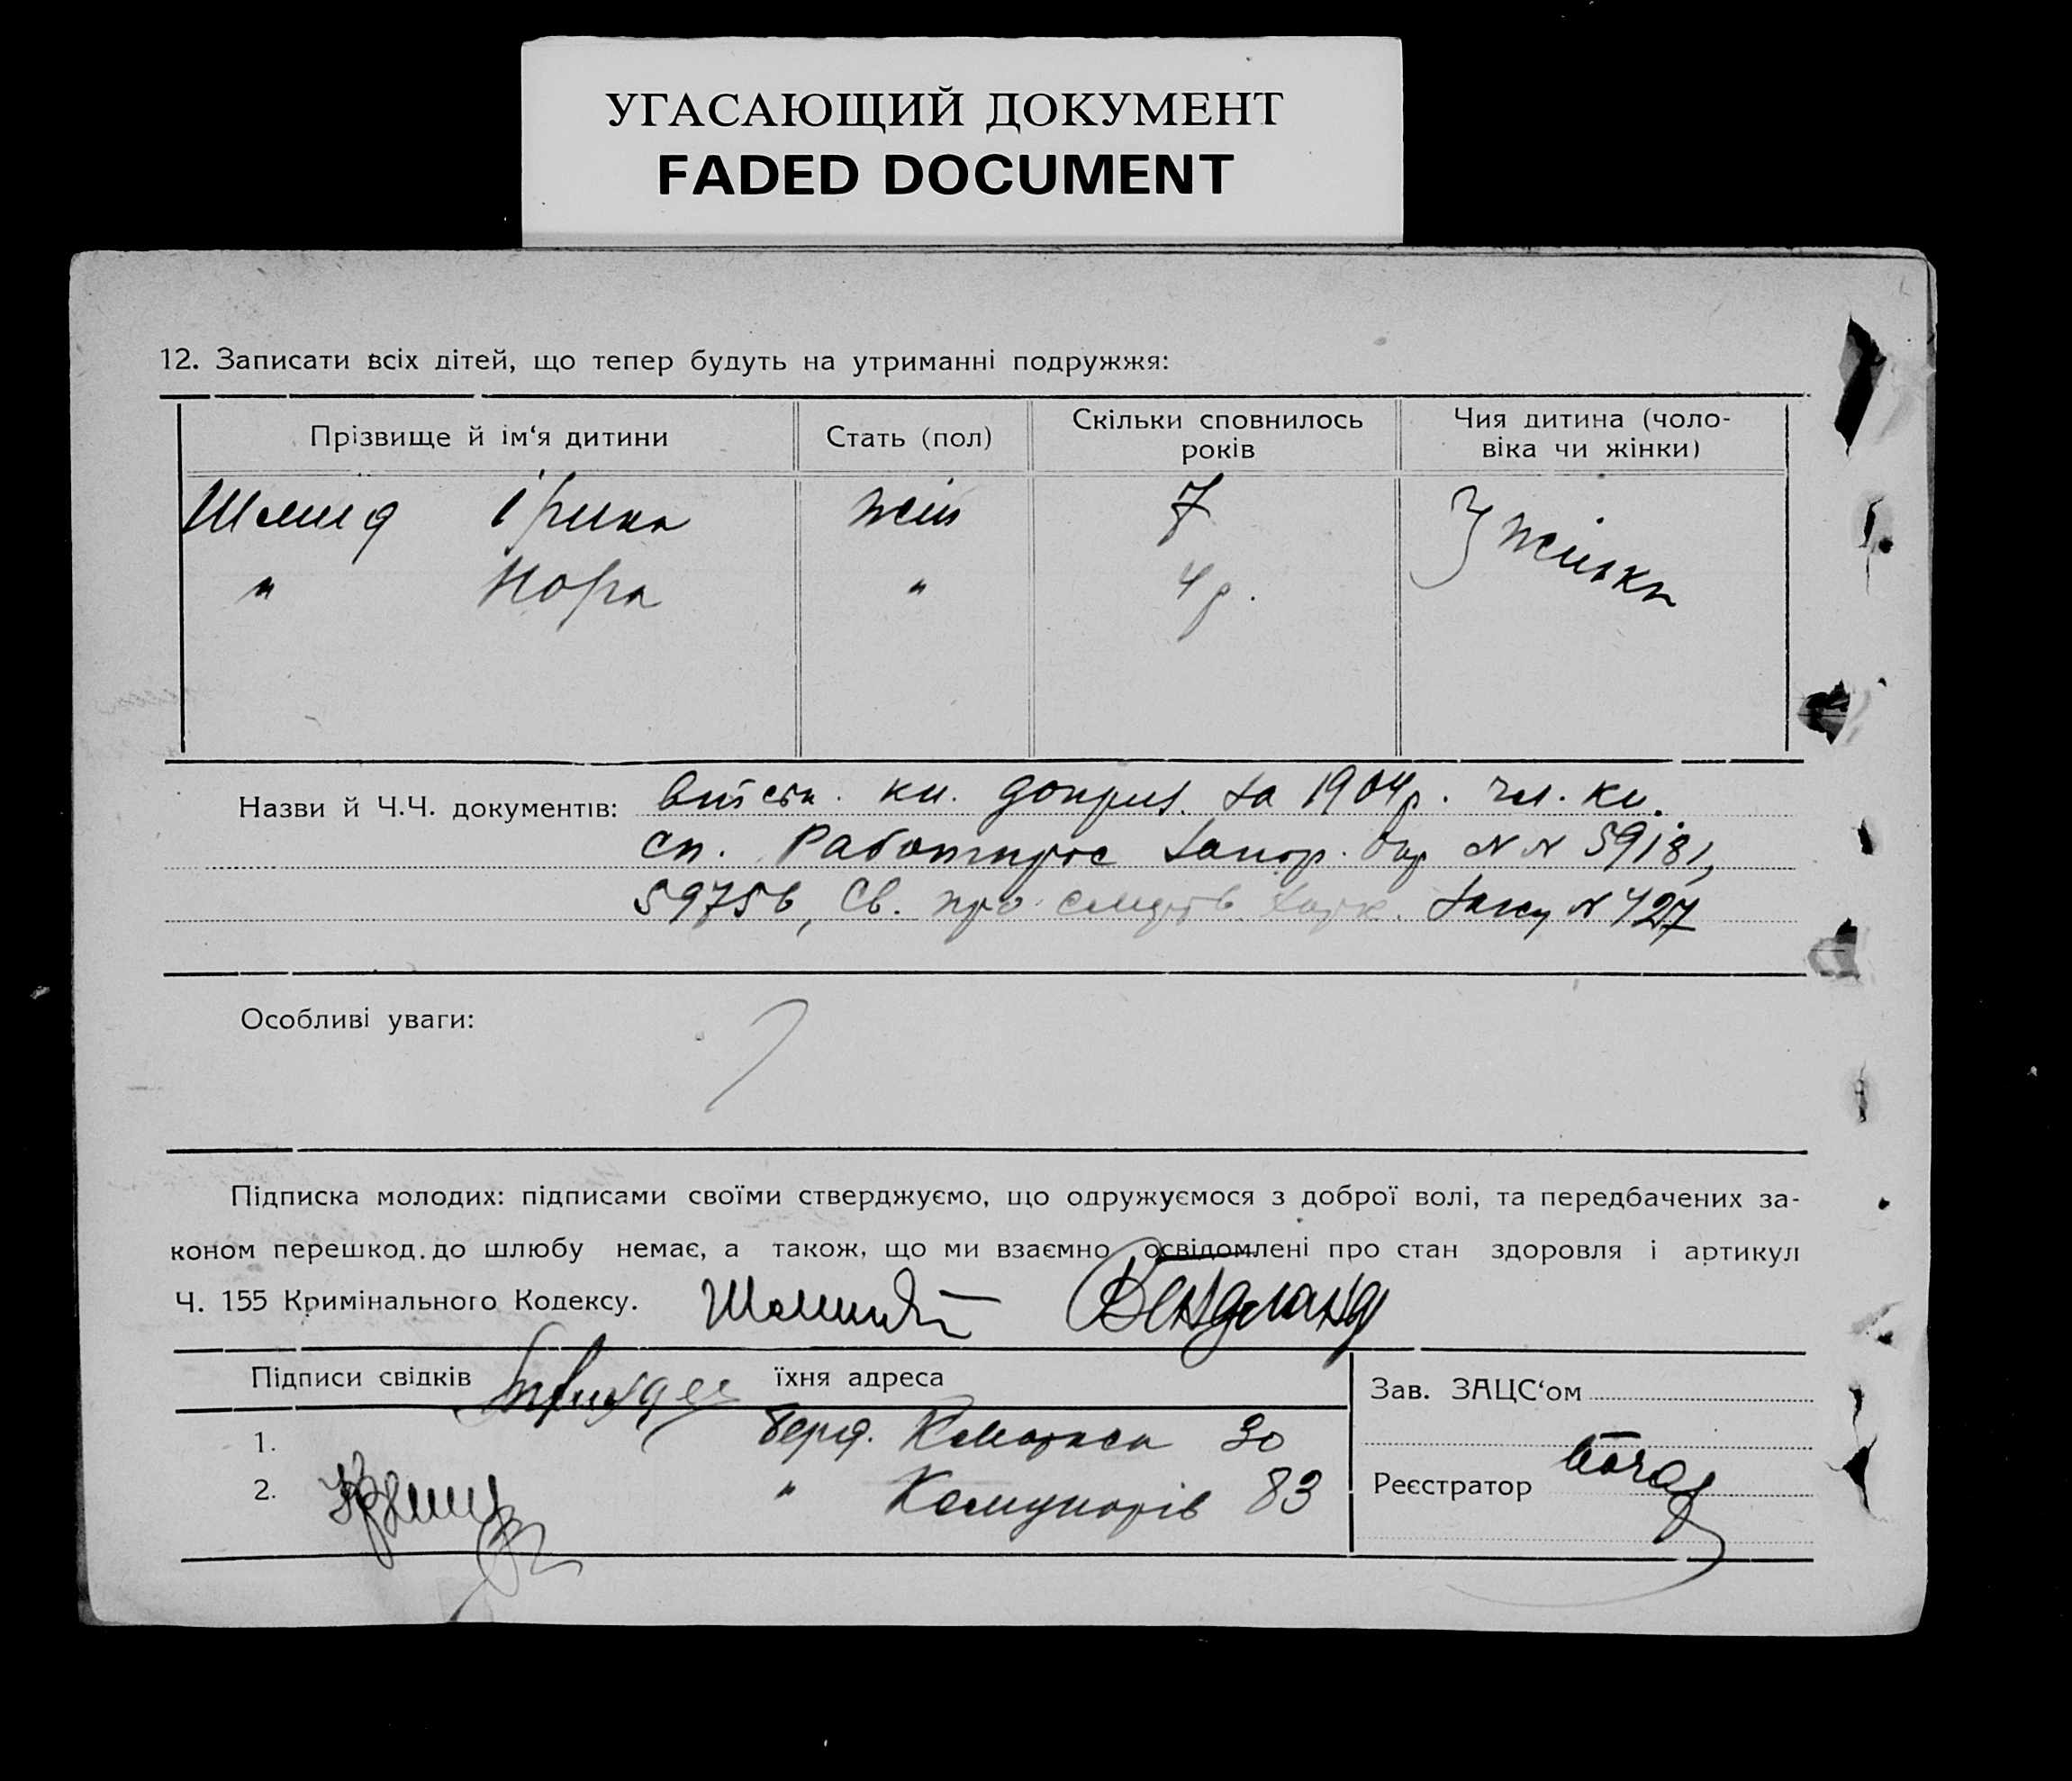 УГАСАЮЩИЙ ДОКУМЕНТ
FADED DOCUMENT
12. Записати всіх дітей, що тепер будуть на утриманні подружжя:
Прізвище й ім‘я дитини
Стать (пол)
Скільки сповнилось
років
Чия дитина (чоло-
віка чи жінки)
Шмид Ірина жін 7
" Нора " 4 р.
жінки
Назви й Ч.Ч. документів:
кн. за 1904 р. чл. кн.
сп. Работпрос N N 59181,
59756, Св. про смерть N 427
Особливі уваги:
Підписка молодих: підписами своїми стверджуємо, що одружуємося з доброї волі, та передбачених за-
коном перешкод до шлюбу немає, а також, що ми взаємно освідомлені про стан здоровля і артикул
Ч. 155 Кримінального Кодексу.
Вендланд
Підписи свідків
їхня адреса
1. 30
2. " Комунарів 83
Зав. ЗАЦС‘ом
Реєстратор